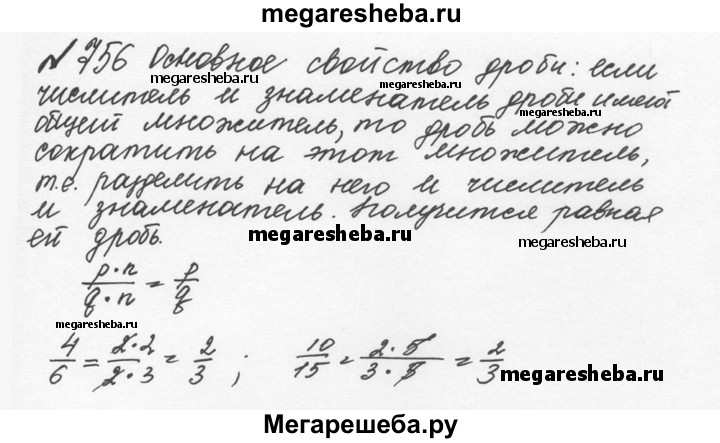 megaresheba.ru
№756 Основное свойство дроби: если
megaresheba.ru
megaresheba.ru
числитель и знаменатель дроби имеют
общий множитель, то дробь можно
сократить на этот множитель,
т.е. разделить на него и числитель
и знаменатель. Получится равная
ей дробь.
megaresheba.ru
megaresheba.ru
p·n/q·n = p/q
megaresheba.ru
4/6 = 2·2/2·3 = 2/3 ; 10/15 = 2·5/3·5 = 2/3
megaresheba.ru
Мегарешеба.ру